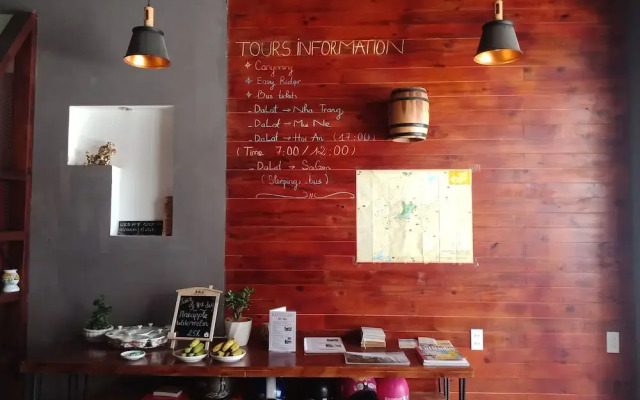 TOURS iNFORMATiON
+ Canyoning
+ Easy Rider
+ Bus tickets
- DaLat → Nha Trang
- DaLat → Mui Ne
- DaLat → Hoi An (17:00)
(Time 7:00/12:00)
- DaLat → SaiGon
(Sleeping bus)
Pineapple
Watermelon
25k